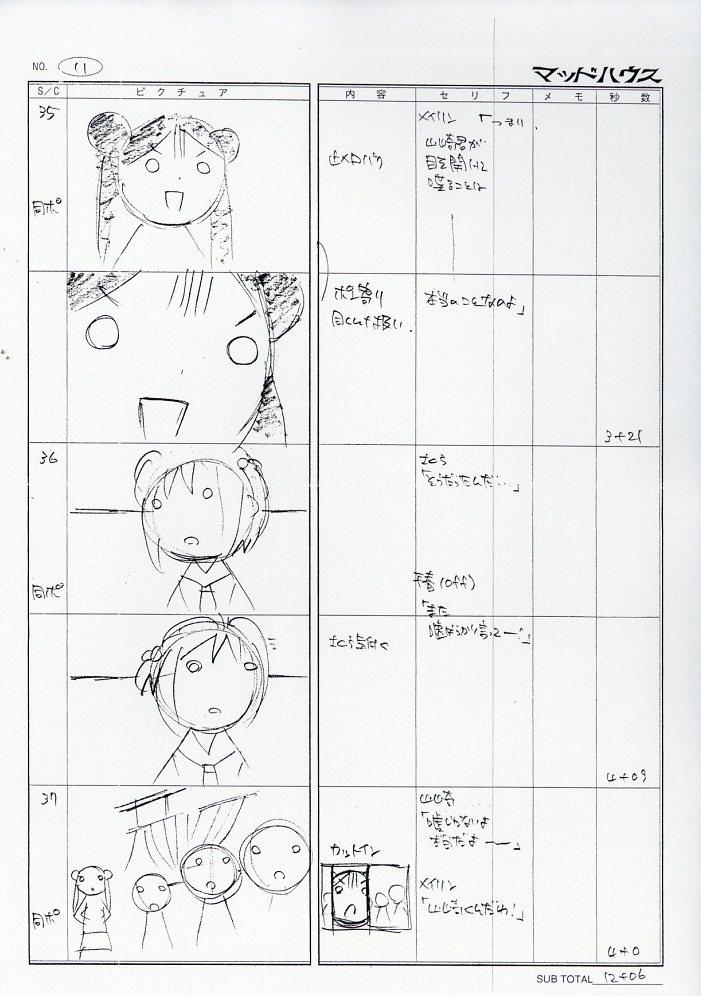 NO. 11
マッドハウス
S/C ピクチュア 内容 セリフ メモ 秒数
35
メイリン 「つまり
山崎君が
目を開けて
喋ることは
同ポ
ポン寄り
本当のことなのよ」
3+21
36
さくら
「そうだったんだ…」
同ポ
千春(off)
「また
嘘ばっかり言って―!」
さくら気付く
4+09
37
山崎
「嘘じゃないよ
本当だよ ―」
カットイン
同ポ
メイリン
「山崎くんだわ!」
4+0
SUB TOTAL 12+06